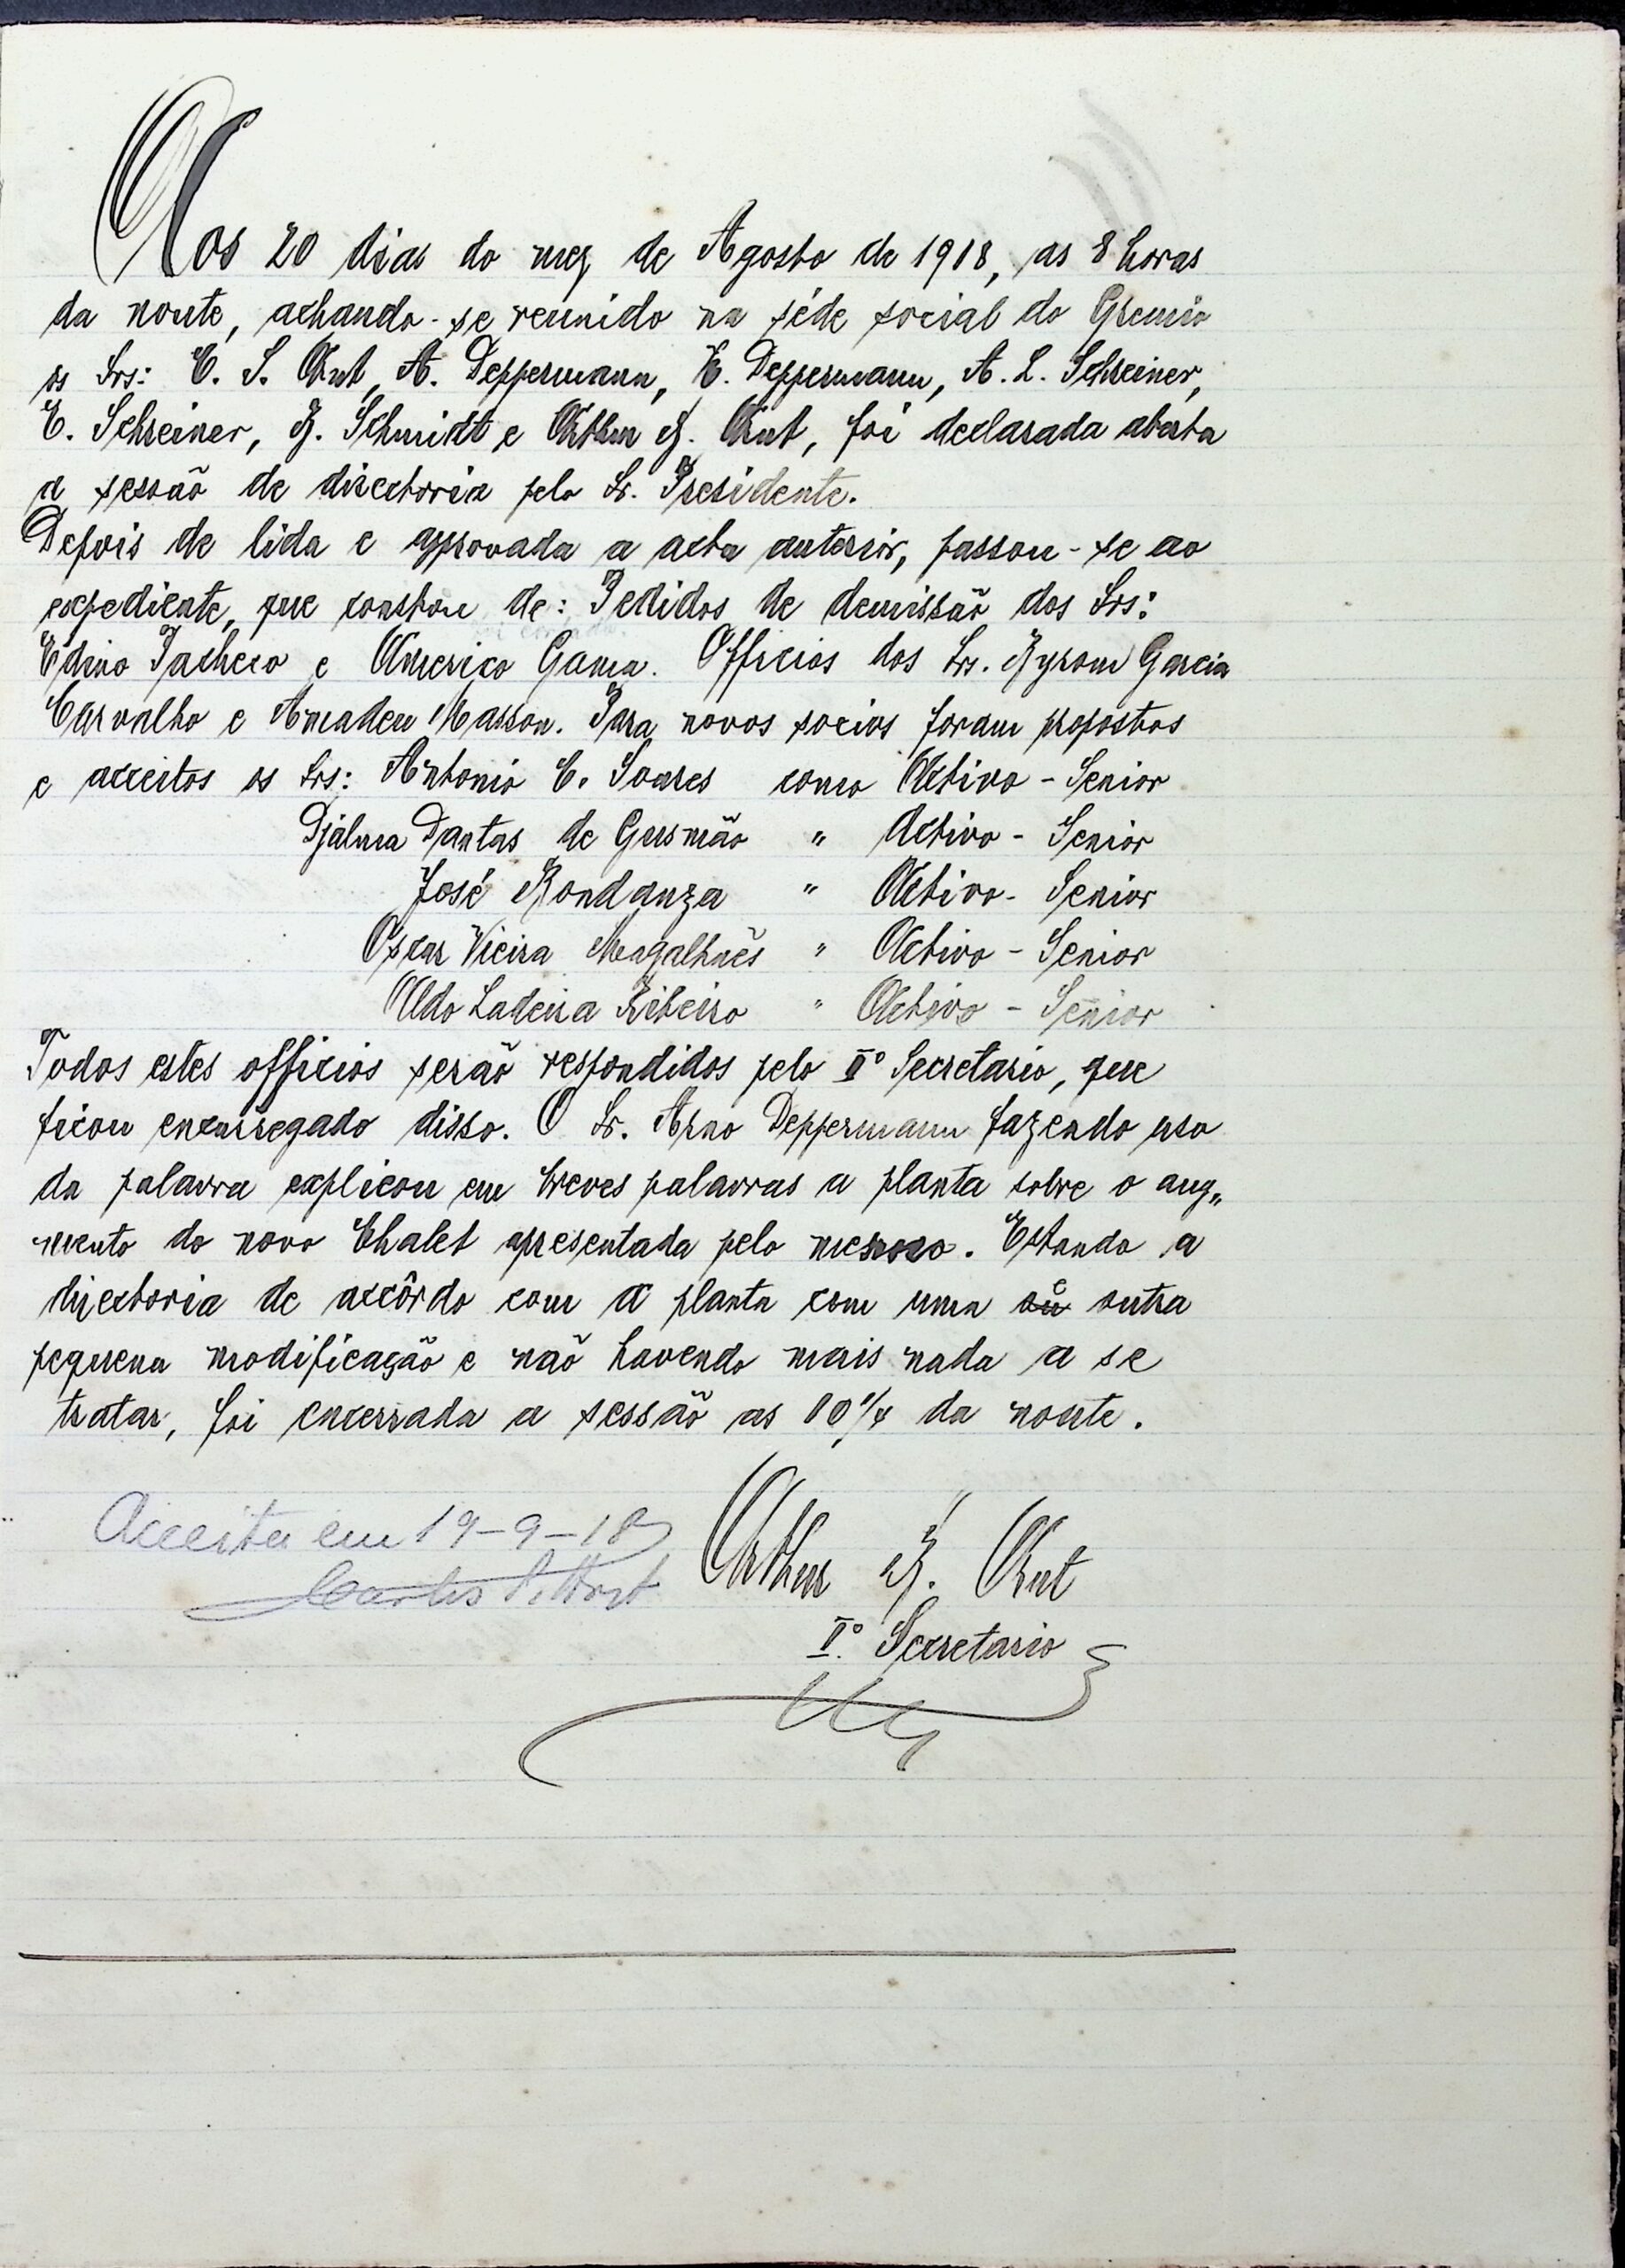 Aos 20 dias do mez de Agosto de 1918, as 8 horas
da noute, achando-se reunido na séde social do Gremio
os Srs: C. S. Arnt, A. Deppermann, E. Deppermann, A. L. Schreiner,
E. Schreiner, J. Schmidt e Arthur J. Arnt, foi declarada aberta
a sessão de directoria pelo Sr. Presidente.
Depois de lida e approvada a acta anterior, passou-se ao
expediente, que constou de: Pedidos de demissão dos Srs:
Edino Pacheco e Americo Gama. Officios dos Srs. Byrom Garcia
Carvalho e Amadeu Masson. Para novos socios foram propostos
e acceitos os Srs: Antonio C. Soares como Activo - Senior
Djalma Dantas de Gusmão " Activo - Senior
José Rondanza " Activo - Senior
Oscar Vieira Magalhães " Activo - Senior
Aldo Ladeira Ribeiro " Activo - Senior
Todos estes officios serão respondidos pelo IIº Secretario, que
ficou encarregado disso. O Sr. Arno Deppermann fazendo uso
da palavra explicou em breves palavras a planta sobre o aug„
mento do novo Chalet apresentada pelo mesmo. Estando a
directoria de accôrdo com a planta com uma ou outra
pequena modificação e não havendo mais nada a se
tratar, foi encerrada a sessão as 10 1/4 da noute.
Acceita em 19-9-18
Carlos S. Arnt
Arthur J. Arnt
Iº. Secretario